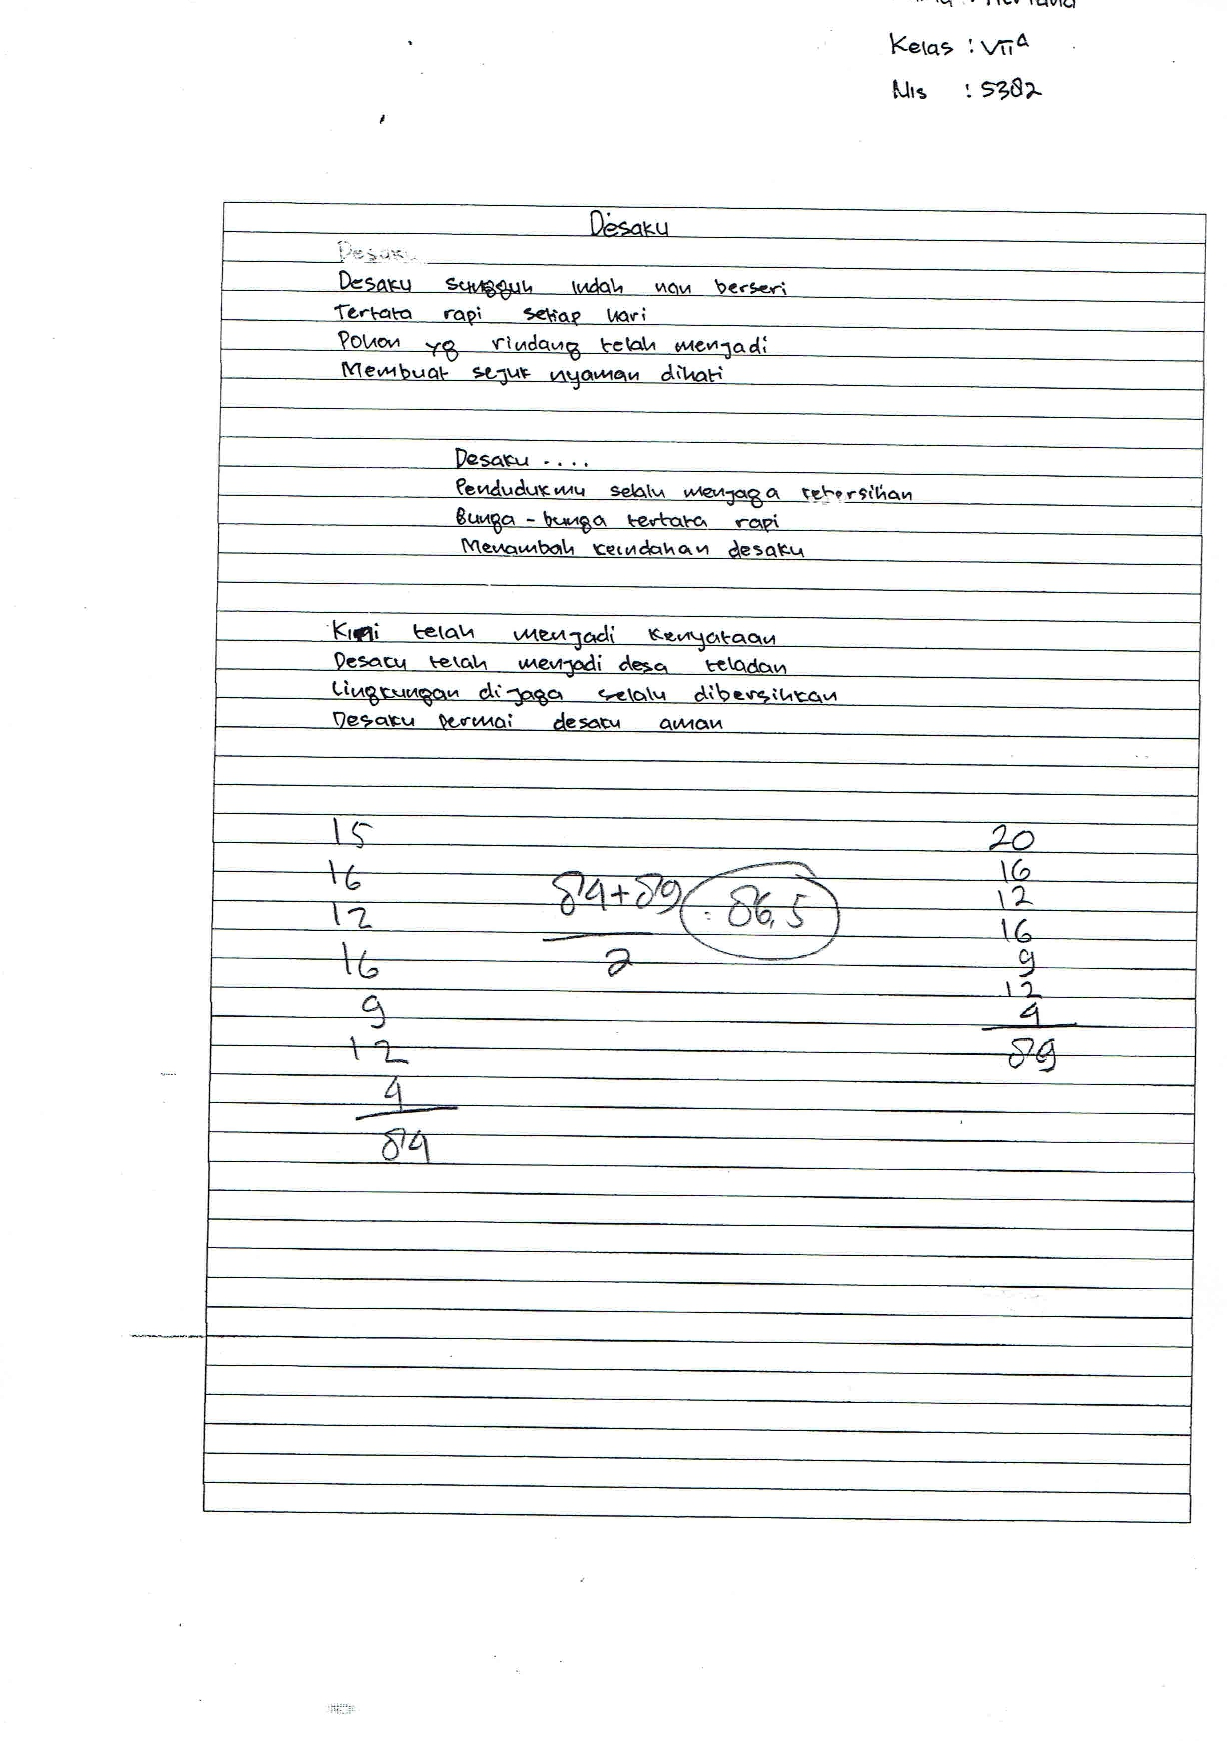 Kelas : VIIA
Nis : 5382
Desaku
Desaku
Desaku sungguh indah nan berseri
Tertata rapi setiap hari
Pohon yg rindang telah menjadi
Membuat sejuk nyaman dihati
Desaku ....
Pendudukmu selalu menjaga kebersihan
Bunga - bunga tertata rapi
Menambah keindahan desaku
Kini telah menjadi kenyataan
Desaku telah menjadi desa teladan
Lingkungan dijaga selalu dibersihkan
Desaku permai desaku aman
15
16
12
16
9
12
4
84
84+89
2
: 86,5
20
16
12
16
9
12
4
89